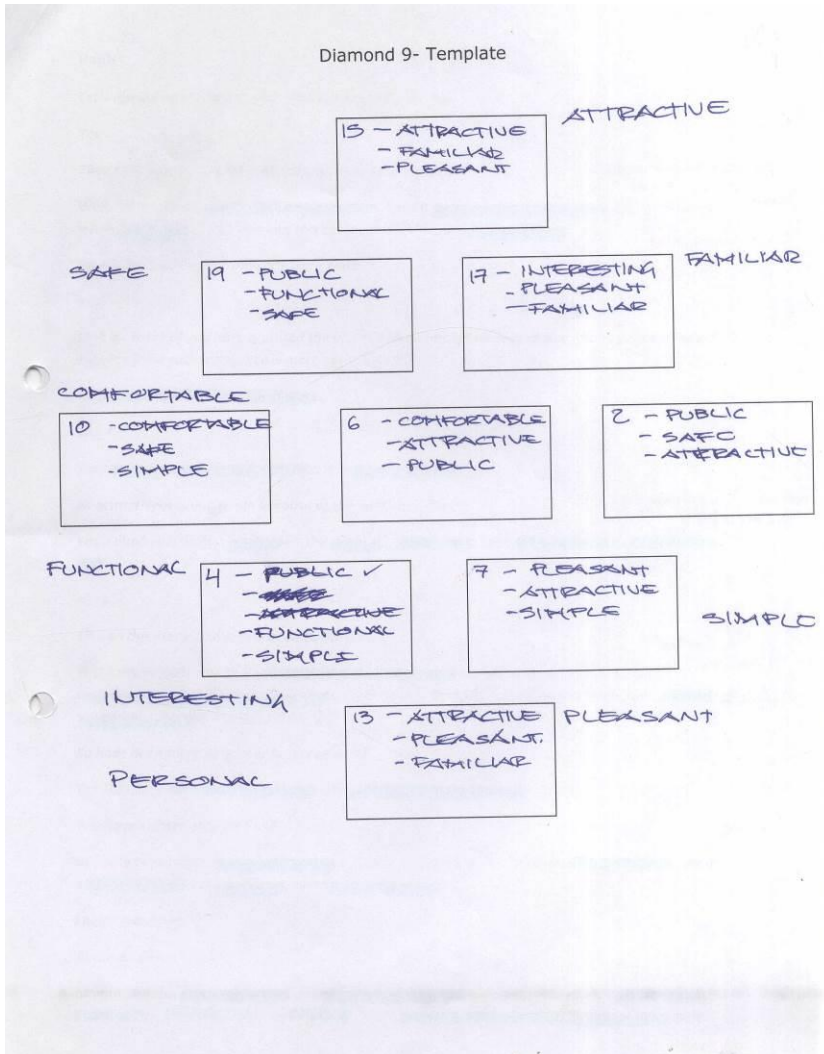 Diamond 9- Template
ATTRACTIVE
15 - ATTRACTIVE
- FAMILIAR
- PLEASANT
SAFE
19 - PUBLIC
- FUNCTIONAL
- SAFE
17 - INTERESTING
- PLEASANT
- FAMILIAR
FAMILIAR
COMFORTABLE
10 - COMFORTABLE
- SAFE
- SIMPLE
6 - COMFORTABLE
- ATTRACTIVE
- PUBLIC
2 - PUBLIC
- SAFE
- ATTRACTIVE
FUNCTIONAL
4 - PUBLIC ✓
- SAFE
- ATTRACTIVE
- FUNCTIONAL
- SIMPLE
7 - PLEASANT
- ATTRACTIVE
- SIMPLE
SIMPLE
INTERESTING
13 - ATTRACTIVE
- PLEASANT.
- FAMILIAR
PLEASANT
PERSONAL